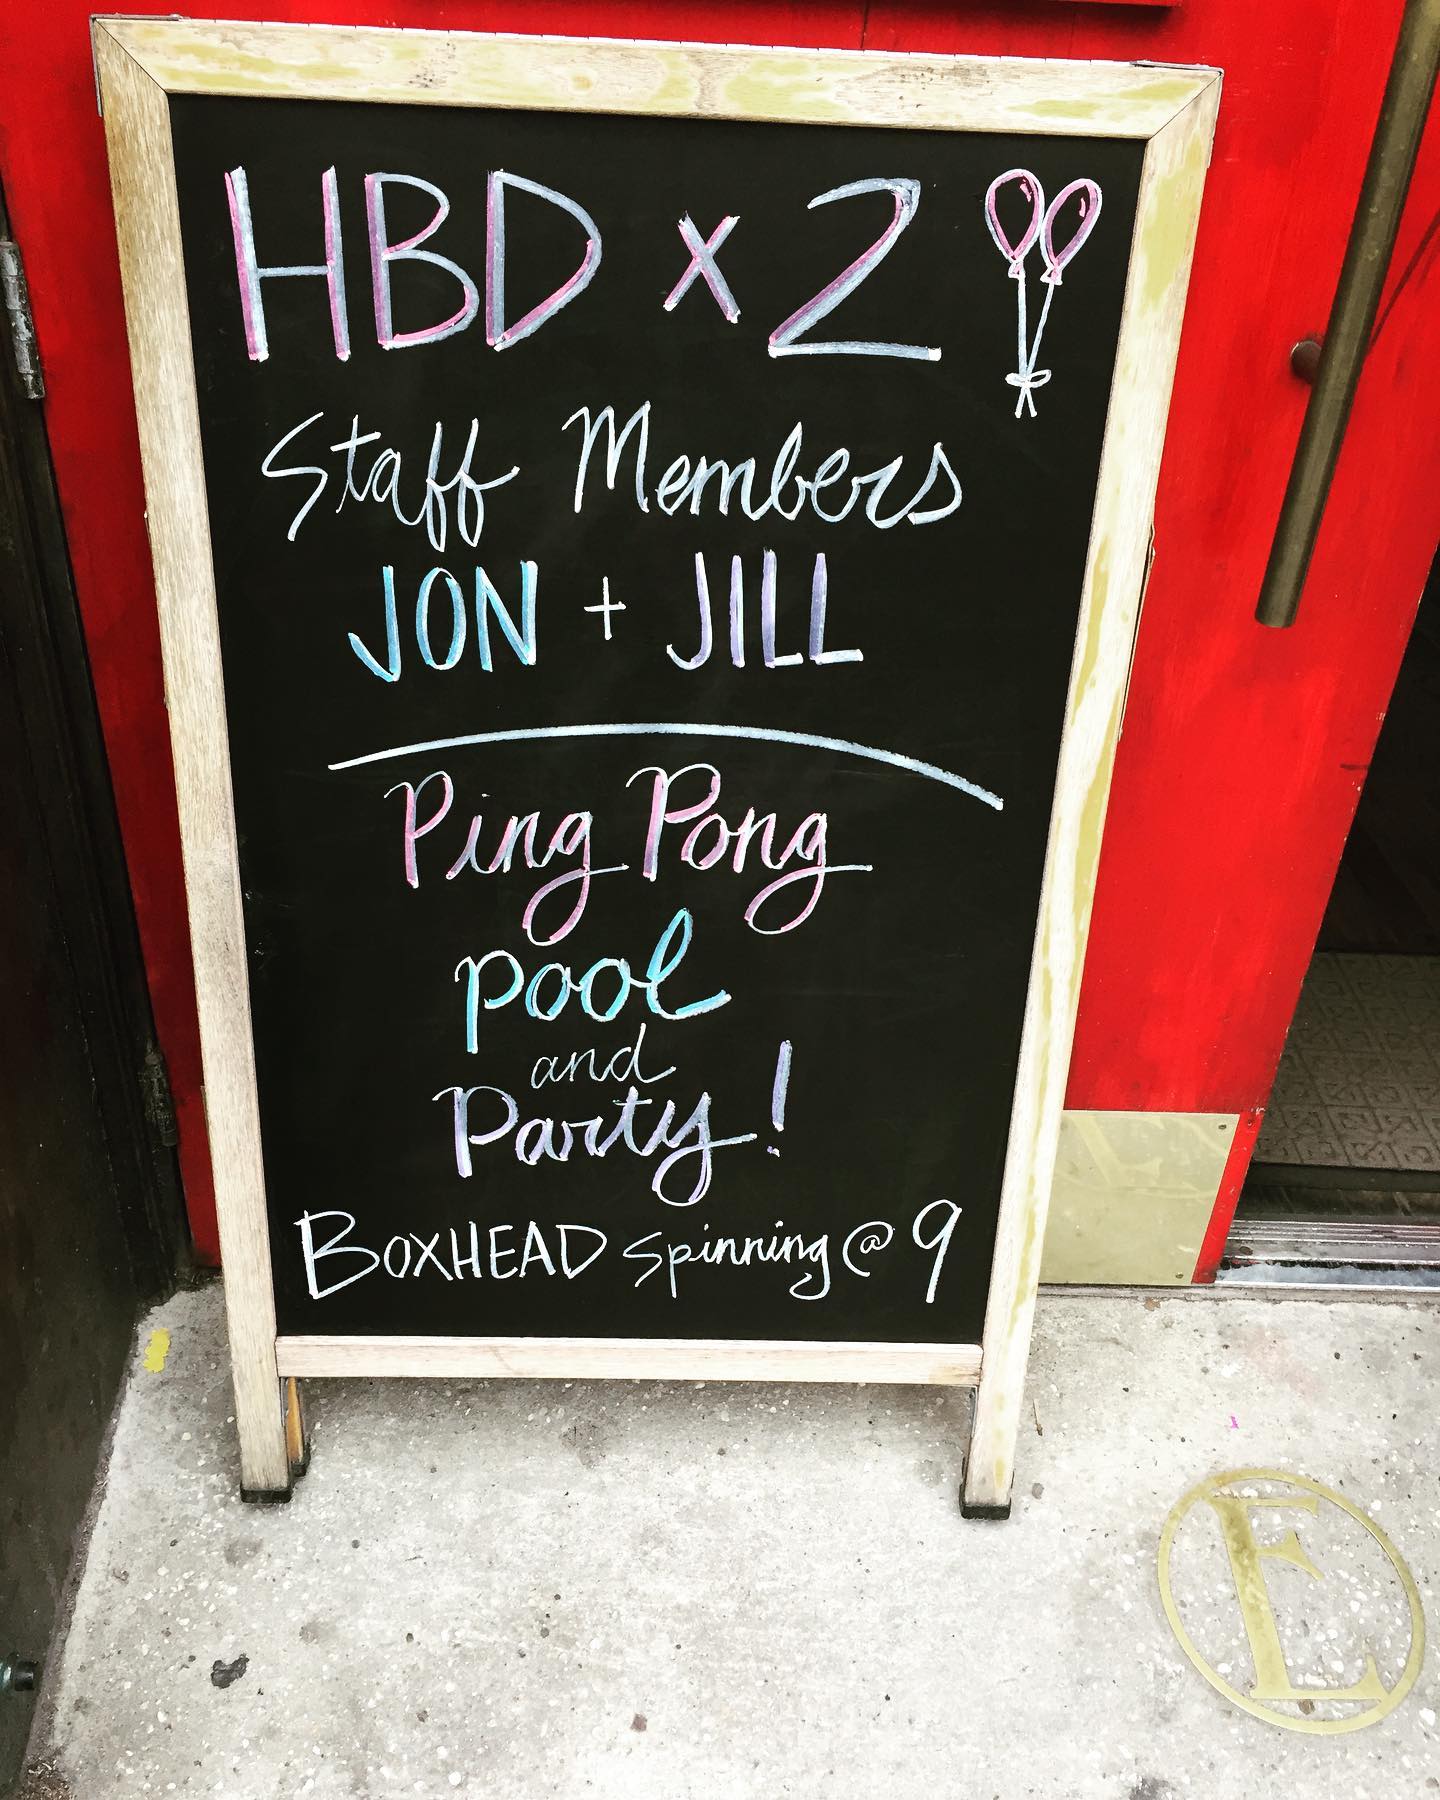 HBD x 2
Staff Members
JON + JILL
Ping Pong
pool
and
Party!
BOXHEAD spinning @ 9
E